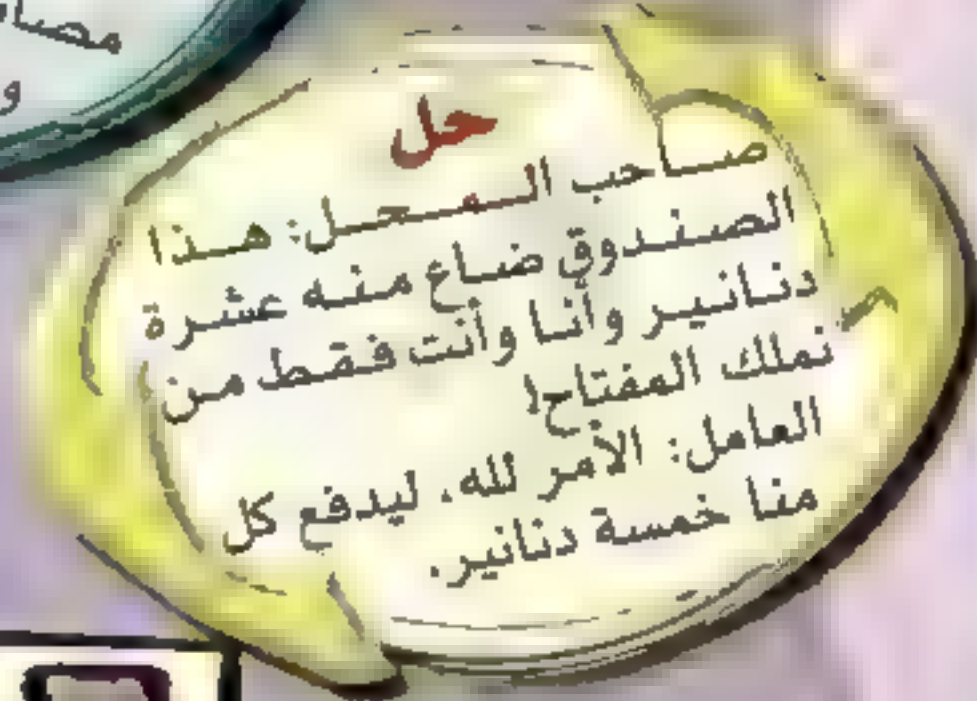 مصا
و
حل
صاحب المحل: هذا
الصندوق ضاع منه عشرة
دنانير وأنا وأنت فقط من
نملك المفتاح!
العامل: الأمر لله، ليدفع كل
منا خمسة دنانير.